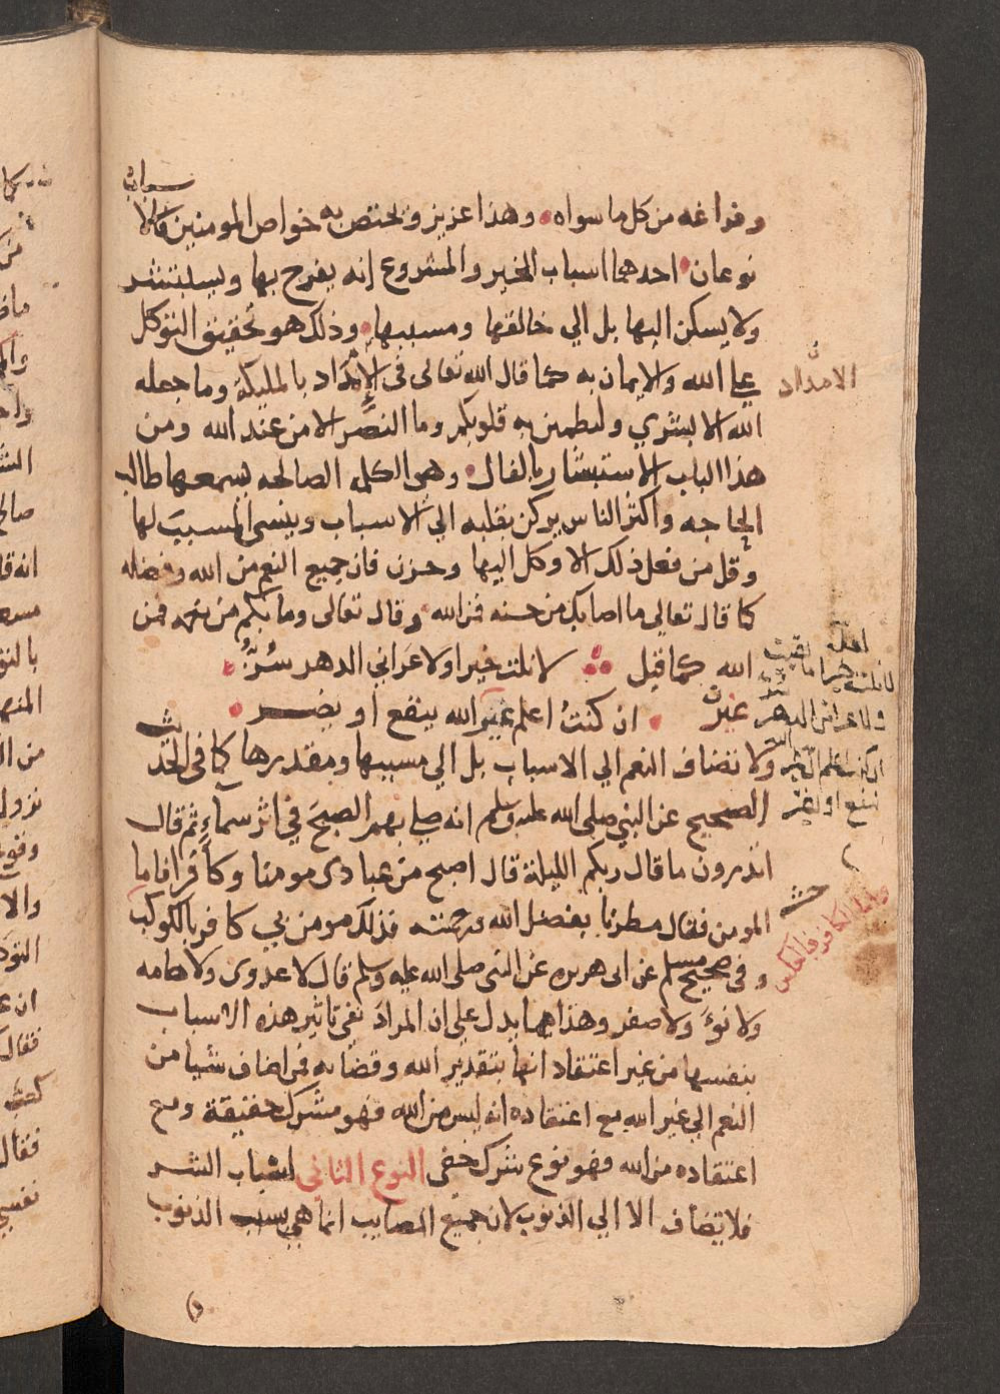 وفراغه من كل ما سواه وهذا عزيز ويختص به خواص المومنين فالاسباب
نوعان احدهما اسباب الخير والمشروع انه يفرح بها ويستبشر
ولا يسكن اليها بل الي خالقها ومسببها وذلك هو تحقيق التوكل
علي الله والايمان به كما قال الله تعالى في الامداد بالمليكة وما جعله
الامداد
الله الا بشري ولتطمين به قلوبكم وما النصر الا من عند الله ومن
هذا الباب الاستبشار بالفال وهي الكلمه الصالحه يسمعها طالب
الحاجه واكثر الناس يركن بقلبه الي الاسباب وينسى المسبب لها
وقل من فعل ذلك الا وكل اليها وحزن فان جميع النعم من الله وفضله
كما قال تعالي ما اصابك من حسنه فمن الله وقال تعالى وما بكم من نعمه فمن
الله كما قيل لا نلت خيرا ولا عراني الدهر شر
غير ان كنت اعلم غير الله ينفع او يضر
ولا تضاف النعم الي الاسباب بل الي مسببها ومقدرها كما في الحديث
الصحيح عن النبي صلى الله عليه وسلم انه صلي بهم الصبح في اثر سماء ثم قال
اتدرون ما قال ربكم الليلة قال اصبح من عبادى مومنا وكافرا فاما
المومن فقال مطرنا بفضل الله ورحمته فذلك مومن بي كافر بالكوكب
واما الكافر
وفى صحيح مسلم عن ابى هريره عن النبى صلى الله عليه وسلم قال لا عدوى ولا هامه
ولا نوء ولا صفر وهذا مما يدل على ان المراد نفى تاثير هذه الاسباب
بنفسها من غير اعتقاد انها بتقدير الله وقضائه فمن اضاف شيا من
النعم الي غير الله مع اعتقاده انه ليس من الله فهو مشرك حقيقة ومع
اعتقاده من الله فهو نوع شرك خفى النوع الثانى اسباب الشر
فلا تضاف الا الي الذنوب لان جميع المصايب انما هي بسبب الذنوب